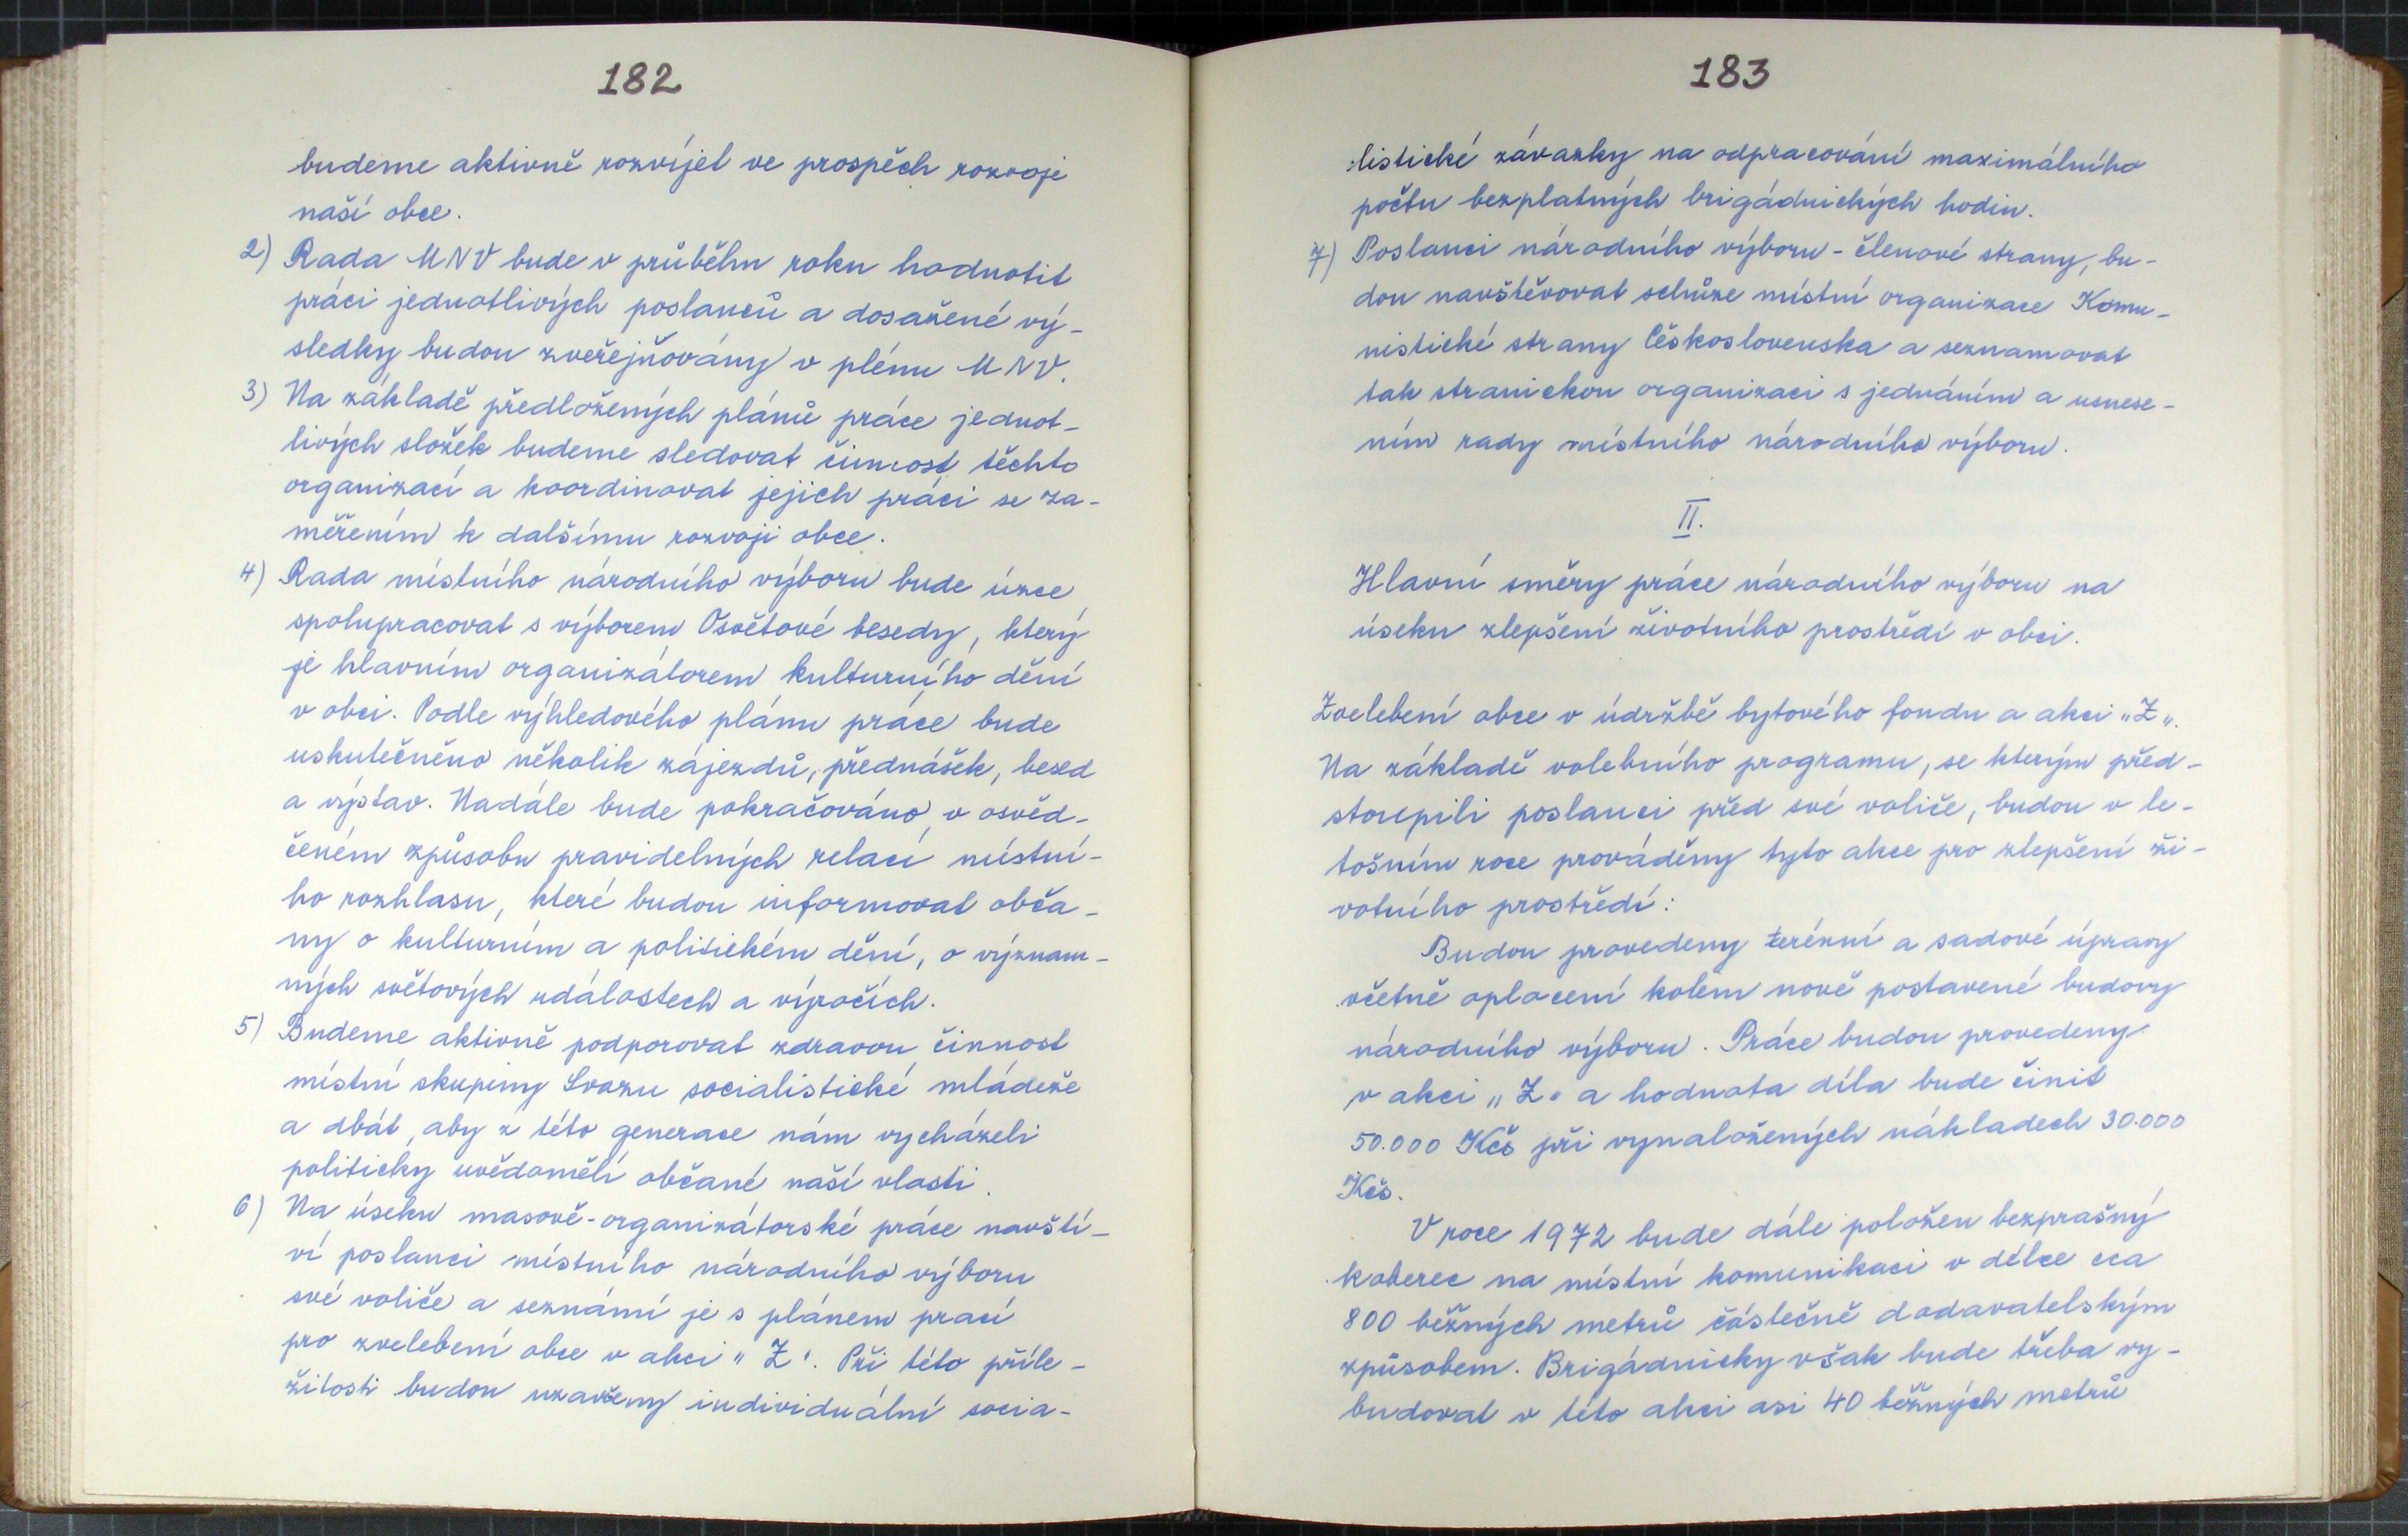 182
budeme aktivně rozvíjet ve prospěch rozvoje
naší obce.
2) Rada MNV bude v průběhu roku hodnotit
práci jednotlivých poslanců a dosažené vý-
sledky budou zveřejňovány v plénu MNV.
3) Na základě předložených plánů práce jednot-
livých složek budeme sledovat činnost těchto
organizací a koordinovat jejich práci se za-
měřením k dalšímu rozvoji obce.
4) Rada místního národního výboru bude úzce
spolupracovat s výborem Osvětové besedy, který
je hlavním organizátorem kulturního dění
v obci. Podle výhledového plánu práce bude
uskutečněno několik zájezdů, přednášek, besed
a výstav. Nadále bude pokračováno v osvěd-
čeném způsobu pravidelných relací místní-
ho rozhlasu, které budou informovat obča-
ny o kulturním a politickém dění, o význam-
ných světových událostech a výročích.
5) Budeme aktivně podporovat zdravou činnost
místní skupiny Svazu socialistické mládeže
a dbát, aby z této generace nám vycházeli
politicky uvědomělí občané naší vlasti.
6) Na úseku masově-organizátorské práce navští-
ví poslanci místního národního výboru
své voliče a seznámí je s plánem prací
pro zvelebení obce v akci "Z". Při této příle-
žitosti budou uzavřeny individuální socia-
183
listické závazky na odpracování maximálního
počtu bezplatných brigádnických hodin.
7) Poslanci národního výboru - členové strany, bu-
dou navštěvovat schůze místní organizace Komu-
nistické strany Československa a seznamovat
tak stranickou organizaci s jednáním a usnese-
ním rady místního národního výboru.
II.
Hlavní směry práce národního výboru na
úseku zlepšení životního prostředí v obci.
Zvelebení obce v údržbě bytového fondu a akci "Z".
Na základě volebního programu, se kterým před-
stoupili poslanci před své voliče, budou v le-
tošním roce prováděny tyto akce pro zlepšení ži-
votního prostředí:
Budou provedeny terénní a sadové úpravy
včetně oplocení kolem nově postavené budovy
národního výboru. Práce budou provedeny
v akci "Z" a hodnota díla bude činit
50.000 Kčs při vynaložených nákladech 30.000
Kčs.
V roce 1972 bude dále položen bezprašný
koberec na místní komunikaci v délce cca
800 běžných metrů částečně dodavatelským
způsobem. Brigádnicky však bude třeba vy-
budovat v této akci asi 40 běžných metrů